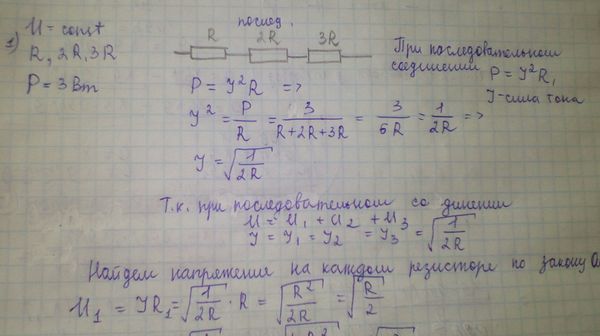 послед.
1)
U = const
R, 2R, 3R
P = 3 Вт
R 2R 3R
При последовательном
соединении P = Y²R,
Y-сила тока
P = Y²R =>
Y² = P/R = 3/(R+2R+3R) = 3/6R = 1/2R =>
Y = √(1/2R)
Т.к. при последовательном со динении
U = U₁ + U₂ + U₃
Y = Y₁ = Y₂ = Y₃ = √(1/2R)
Найдем напряжения на каждом резисторе по закону
U₁ = YR₁ = √(1/2R) · R = √(R²/2R) = √(R/2)